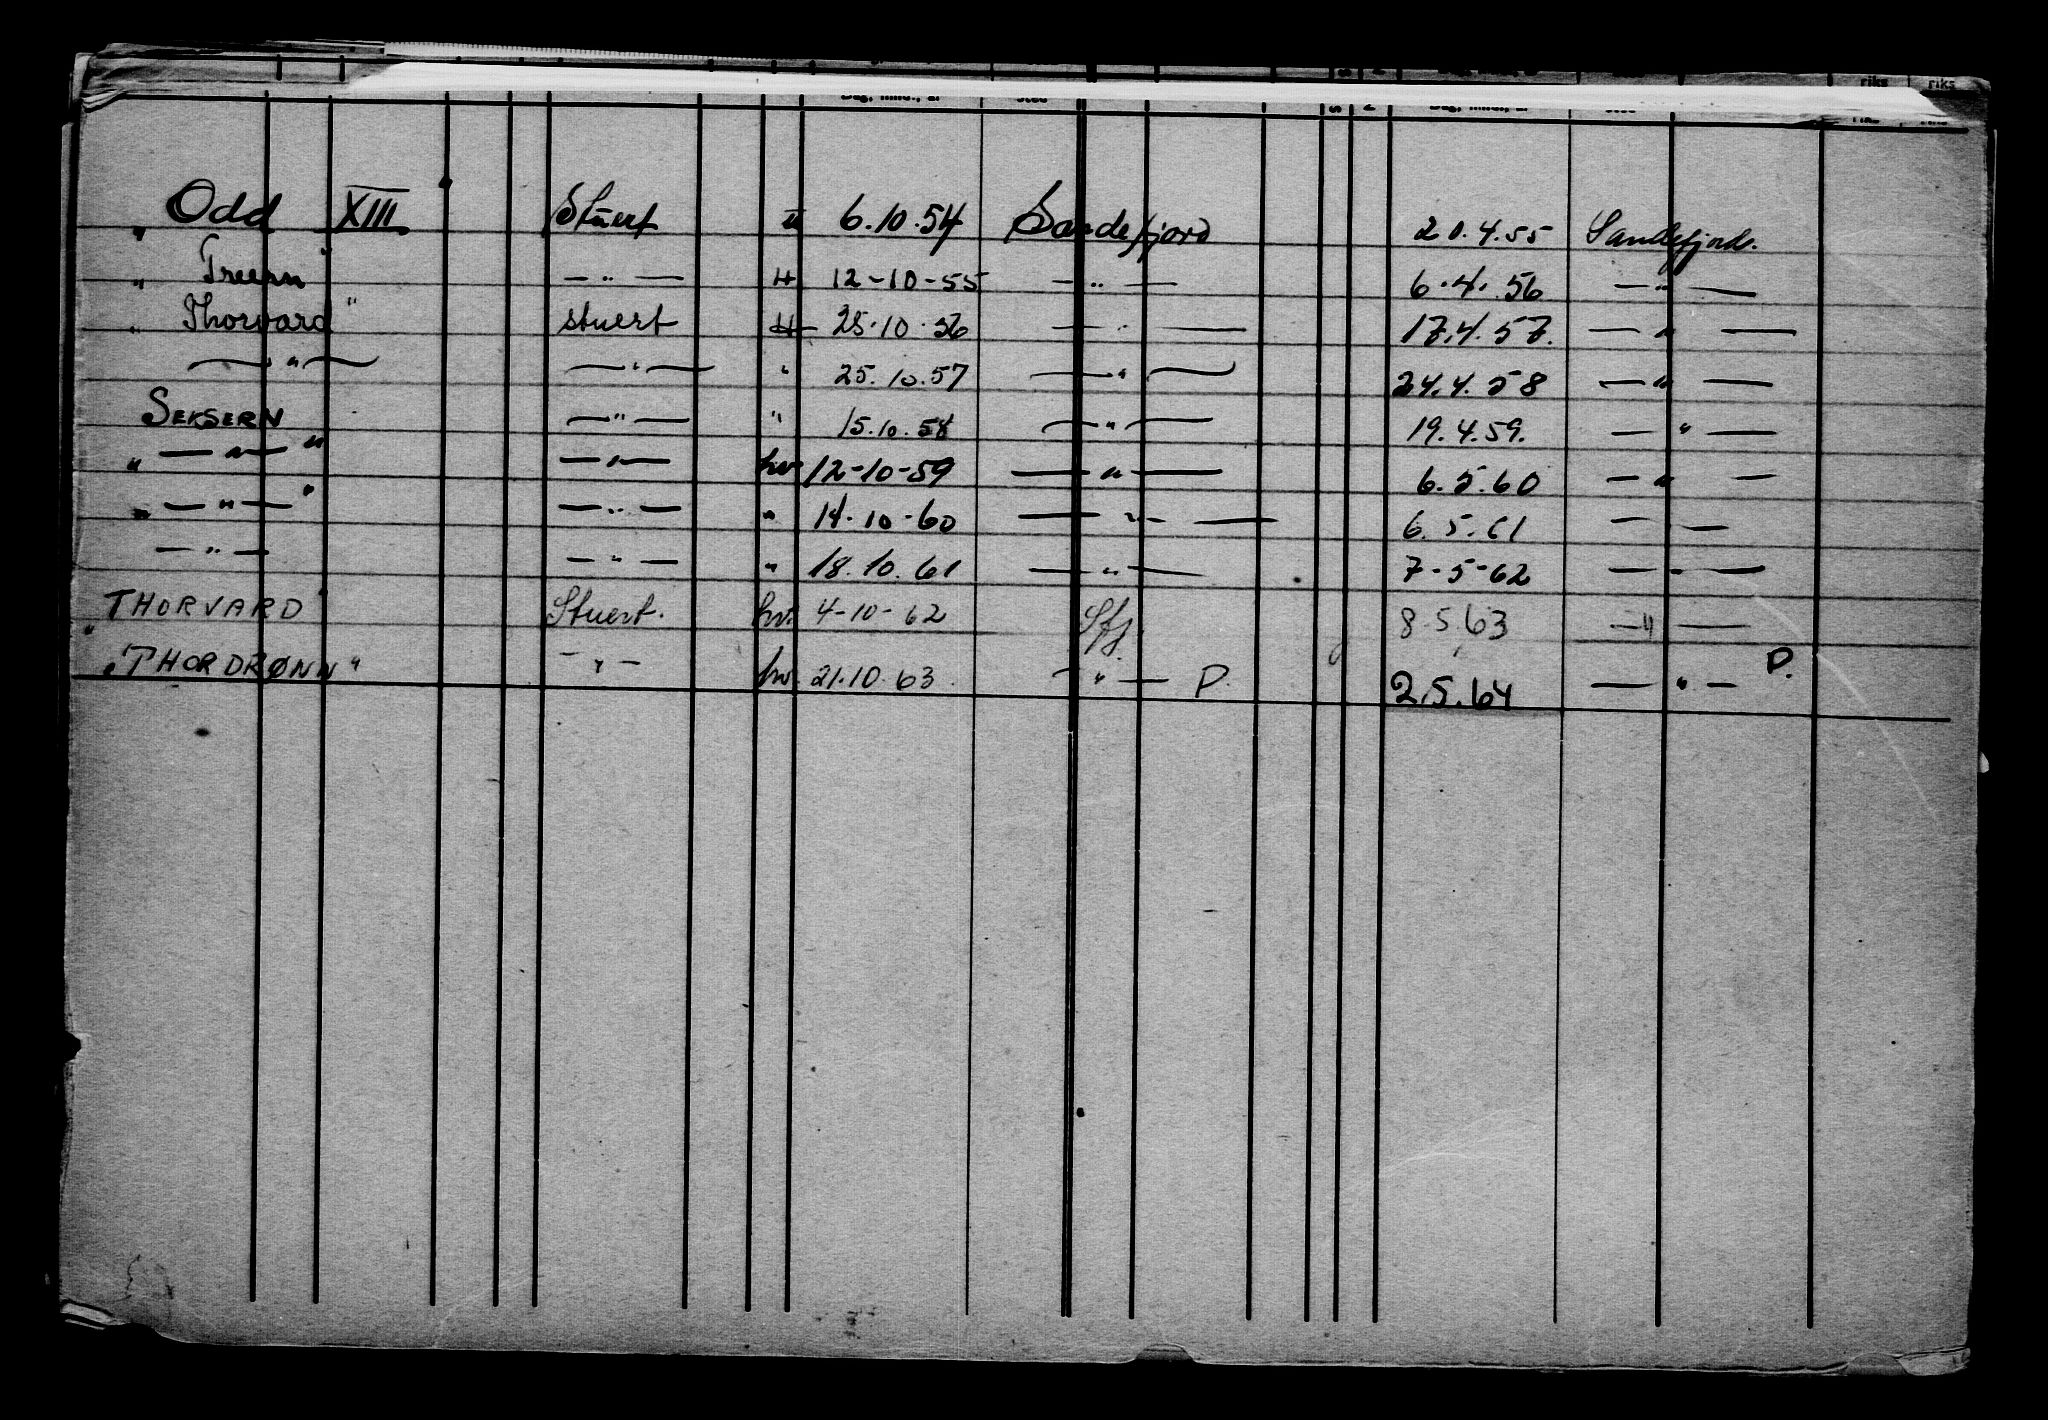 riks riks
Odd XIII" Stuert H 6.10.54 Sandefjord 20.4.55 Sandefjord.
" Treern " — " — H 12-10-55 — " — 6.4.56 — " —
" Thorvard " stuert H 25.10.56 — " — 17.4.57. — " —
" — " — — " — " 25.10.57 — " — 24.4.58 — " —
SEKSERN — " — " 15.10.58 — " — 19.4.59. — " —
— " — " — " — hv 12-10-59 — " — 6.5.60 — " —
" — " — " — " — " 14-10-60 — " — 6.5.61 — —
" — " — — " — " 18.10.61 — " — 7-5-62 — " —
THORVARD " Stuert. hv. 4-10-62 Sfj. 8.5.63 — " —
" "THORDRØNN" — " — hv. 21.10.63 — " — P. 2.5.64 — " — P.